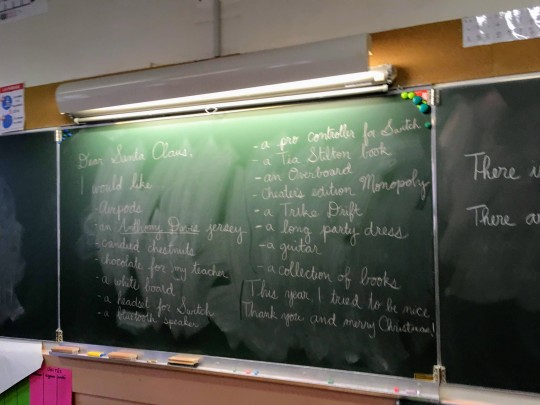 Dear Santa Claus,
I would like
- Airpods
- an Anthony Davis jersey
- candied chestnuts
- chocolate for my teacher
- a white board
- a headset for Switch
- a bluetooth speaker
- a pro controller for Switch
- a Tea Stilton book
- an Overboard
- cheater's edition Monopoly
- a Trike Drift
- a long party dress
- a guitar
- a collection of books
This year, I tried to be nice
Thank you and merry Christmas!
There
There